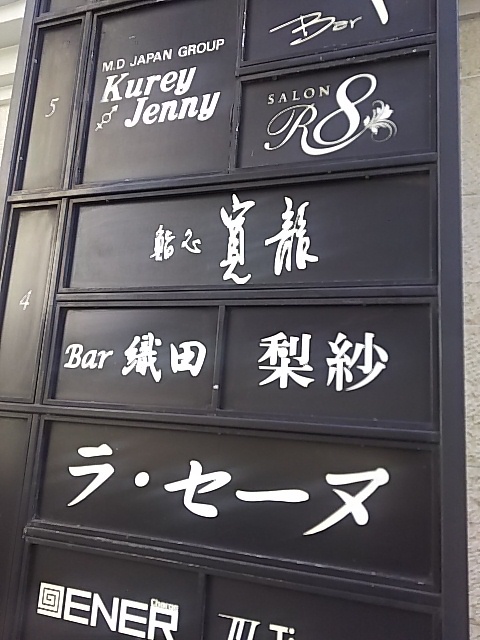 Bar
5
M.D JAPAN GROUP
Kurey
Jenny
SALON
R8
鮨心 寛龍
4
Bar 織田
梨紗
ラ・セーヌ
ENER